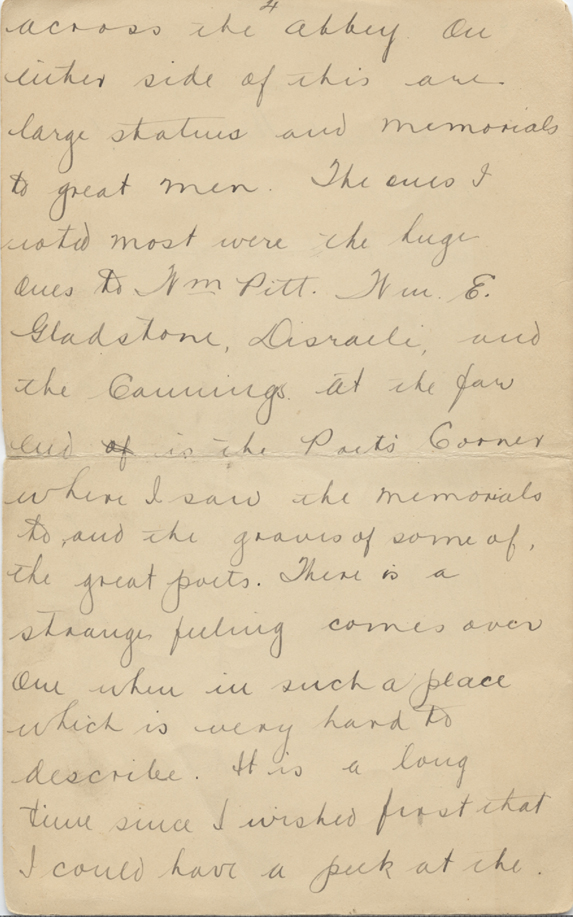 4
across the abbey. On
either side of this are
large statues and memorials
to great men. The ones I
noted most were the huge
ones to Wm Pitt. Wm. E.
Gladstone, Disraeli, and
the Cannings. At the far
end of is the Poets Corner
where I saw the memorials
to, and the graves of some of,
the great poets. There is a
strange feeling comes over
one when in such a place
which is very hard to
describe. It is a long
time since I wished first that
I could have a peek at the.